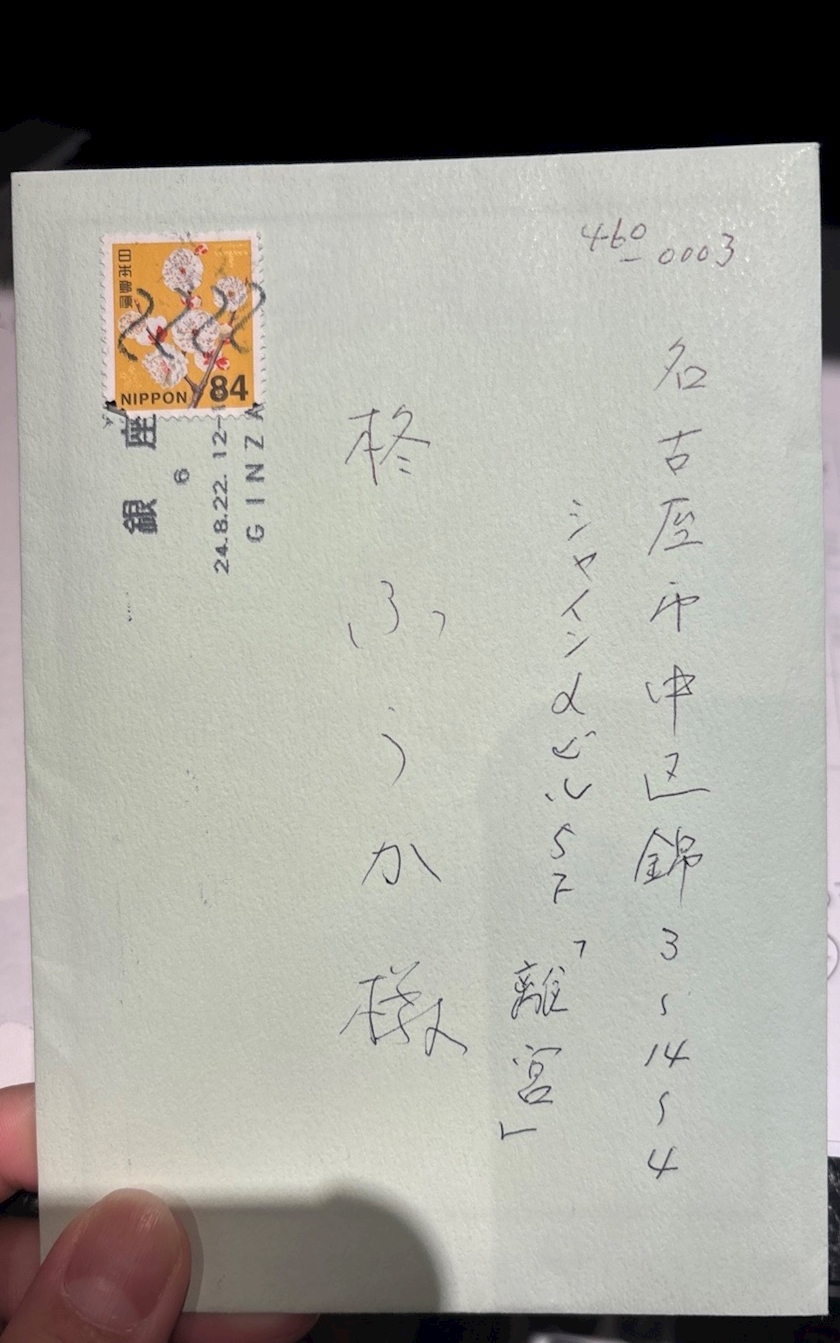 460-0003
名古屋市中区錦3〜14〜4
シャインメビル5F「離宮」
柊ふうか様
日本郵便
NIPPON 84
銀座
6
24.8.22. 12-
GINZA